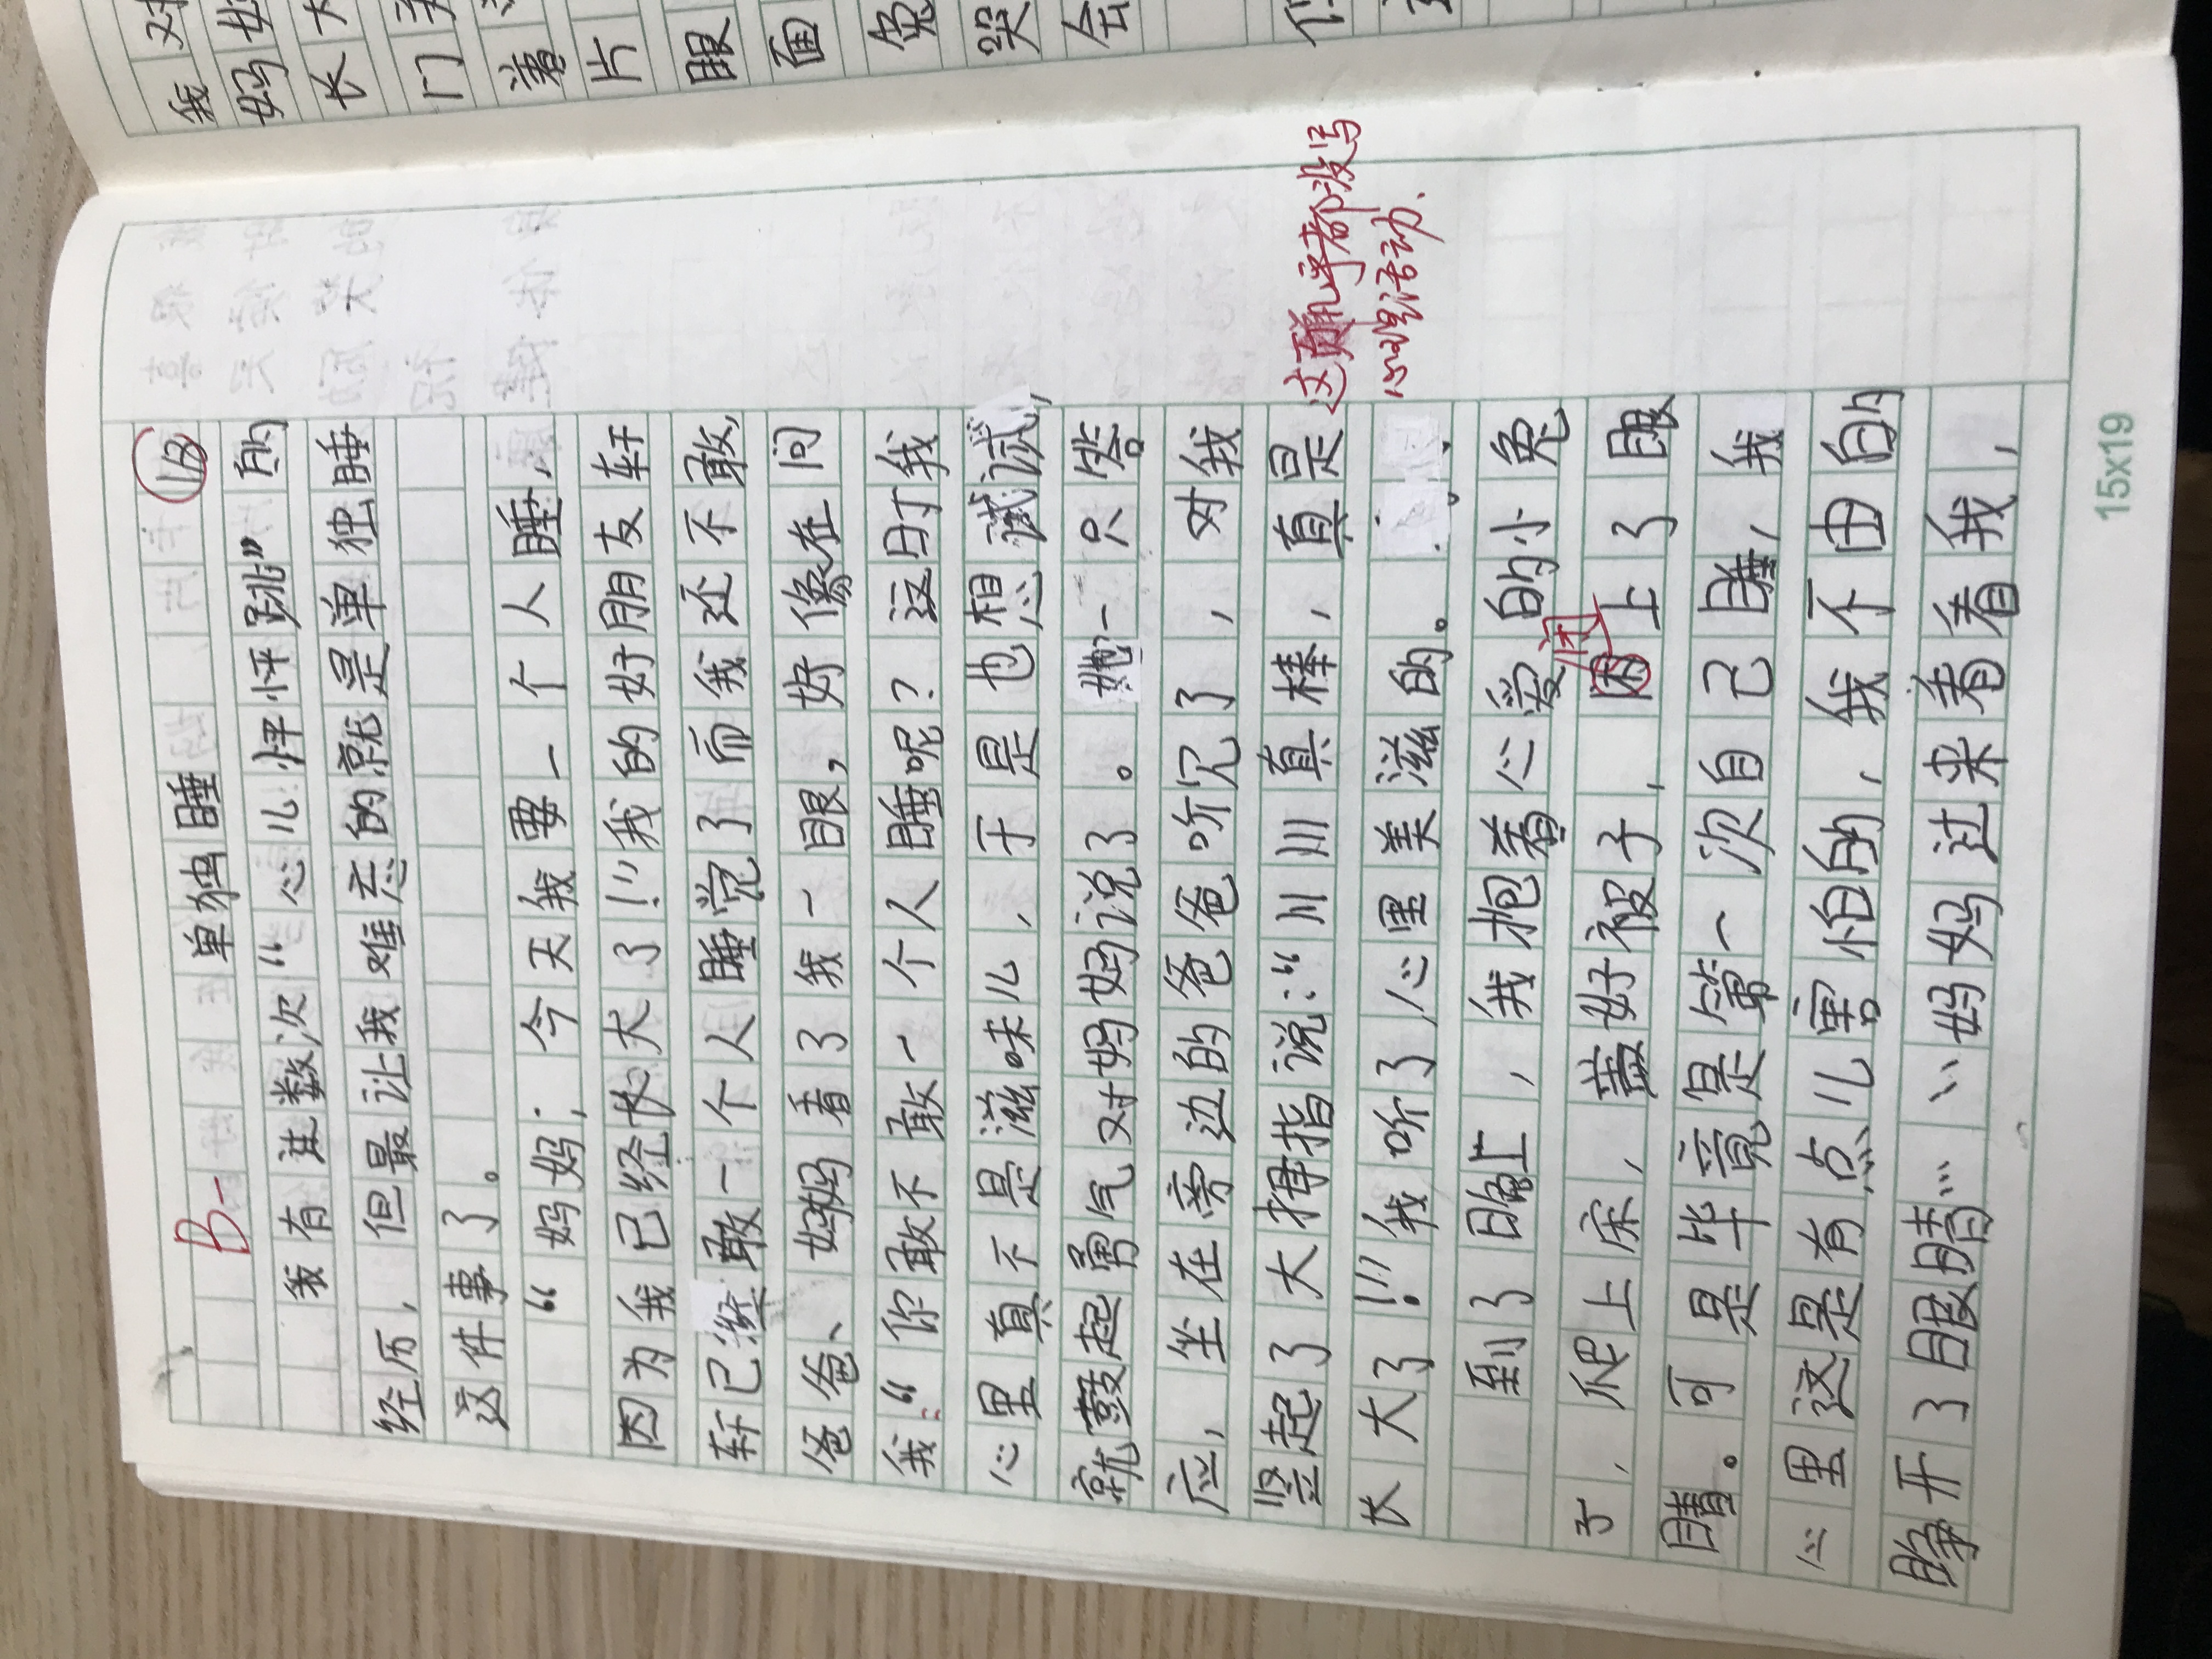 B- 单独睡 18
我有过数次“心儿怦怦跳”的
经历，但最让我难忘的就是单独睡
这件事了。
“妈妈；今天我要一个人睡，
因为我已经长大了！”我的好朋友轩
轩已经敢一个人睡觉了而我还不敢，
爸爸、妈妈看了我一眼，好像在问
我：“你敢不敢一个人睡呢？这时我
心里真不是滋味儿，于是也想试试，
就鼓起勇气对妈妈说了。她一只答
应，坐在旁边的爸爸听见了，对我
竖起了大拇指说：“川川真棒，真是
长大了！！”我听了心里美滋的。
这页几乎都没写
心理活动、
到了晚上，我抱着心爱的小兔
子，爬上床，盖好被子，困上了眼
闭
睛。可是毕竟是第一次自己睡，我
心里这是有点儿害怕的，我不由的
睁开了眼睛……妈妈过来看看我，
15x19
我对
妈妈
长大
门
着
片
眼
面
兔
哭
会